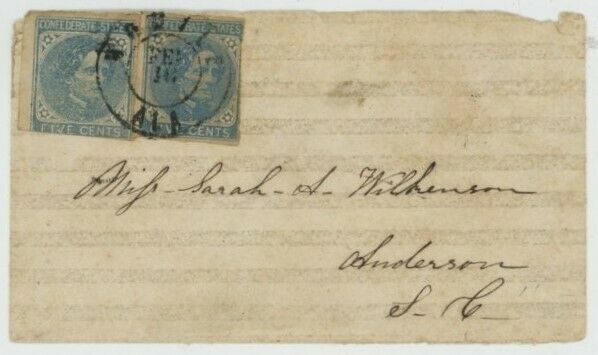 CONFEDERATE STATES
CONFEDERATE STATES
FEB
ALA
FIVE CENTS
FIVE CENTS
Miss - Sarah - A - Wilkenson
Anderson
S. C